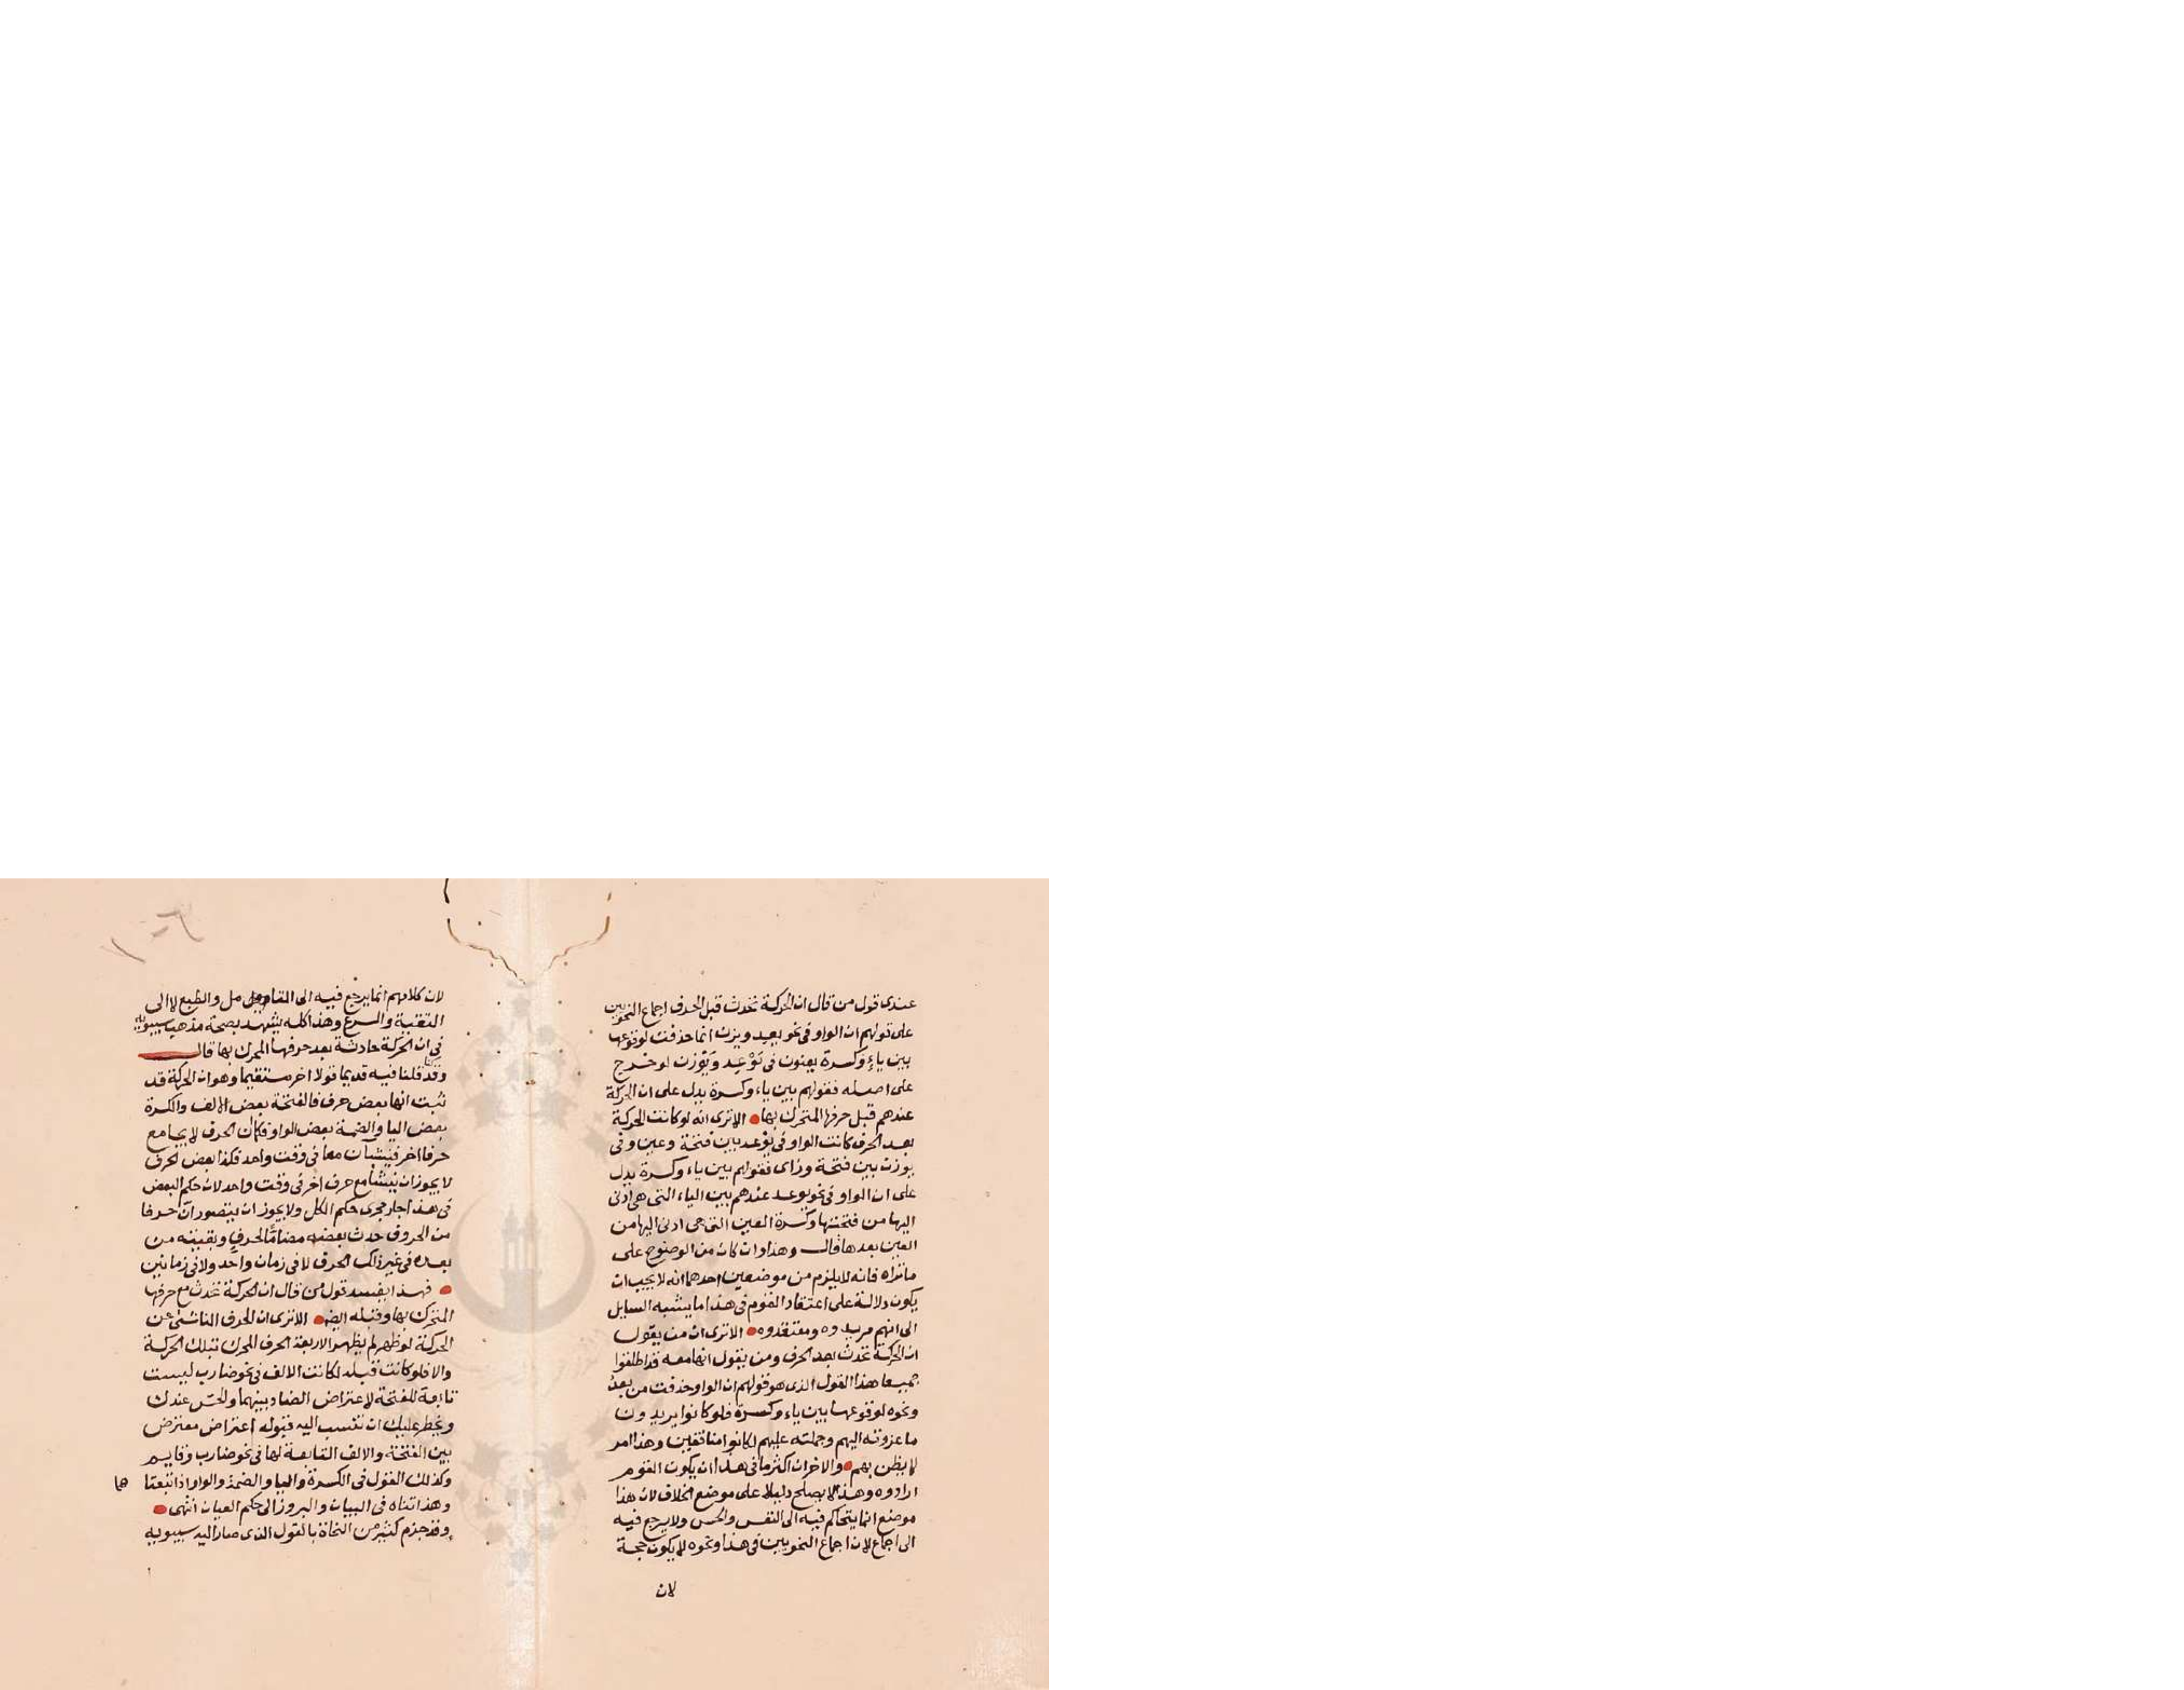 عندى قول من قال ان الحركة تحدث قبل الحرف اجماع النحويين
على قولهم ان الواو فى نحو يعد ويزن انما حذفت لوقوعها
بين ياء وكسرة يعنون فى يَوْعِد ويَوْزن لو خرج
على اصله فقولهم بين ياء وكسرة يدل على ان الحركة
عندهم قبل حرفها المتحرك بها الا ترى انه لو كانت الحركة
بعد الحرف كانت الواو فى يوعد بين فتحة وعين وفى
يوزن بين فتحة وزاى فقولهم بين ياء وكسرة يدل
على ان الواو فى نحو يوعد عندهم بين الياء التى هى ادنى
اليها من فتحتها وكسرة العين التى هى ادنى اليها من
العين بعدها قال وهذا وان كان من الوضوح على
ما تراه فانه لا يلزم من موضعين احدهما انه لا يجب ان
يكون دلالة على اعتقاد القوم فى هذا ما يشبه السايل
الى انهم مريدوه ومعتقدوه الا ترى ان من يقول
ان الحركة تحدث بعد الحرف ومن يقول انها معه قد اطلقوا
جميعا هذا القول الذى هو قولهم ان الواو حذفت من يعد
ونحوه لوقوعها بين ياء وكسرة فلو كانوا يريدون
ما عزوته اليهم وحملته عليهم لكانوا مناقضين وهذا امر
لا يظن بهم والاخر ان اكثر ما فى هذا ان يكون القوم
ارادوه وهذا لا يصلح دليلا على موضع الخلاف لان هذا
موضع انما يتحاكم فيه الى النفس والحس ولا يرجع فيه
الى اجماع لان اجماع النحويين فى هذا ونحوه لا يكون حجة
لان
لان كلامهم انما يرجع فيه الى التامل والطبع لا الى
التقية والسرع وهذا كله يشهد بصحة مذهب سيبويه
فى ان الحركة حادثة بعد حرفها المحرك بها قال
وقد قلنا فيه قديما قولا اخر مستقيما وهو ان الحركة قد
ثبت انها بعض حرف فالفتحة بعض الالف والكسرة
بعض اليا والضمة بعض الواو فكما ان الحرف لا يجامع
حرفا اخر فينشآن معا فى وقت واحد فكذا بعض الحرف
لا يجوز ان ينشا مع حرف اخر فى وقت واحد لان حكم البعض
فى هذا جار مجرى حكم الكل ولا يجوز ان يتصور ان حرفا
من الحروف حدث بعضه مضامًا لحرف وبقيته من
بعده فى غير ذلك الحرف لا فى زمان واحد ولا فى زمانين
فهذا يفسد قول من قال ان الحركة تحدث مع حرفها
المتحرك بها وقبله ايضا الا ترى ان الحرف الناشئ عن
الحركة لو ظهر لم يظهر الا بعد الحرف المحرك بتلك الحركة
والا فلو كانت قبله لكانت الالف فى نحو ضارب ليست
تابعة للفتحة لاعتراض الضاد بينهما والحس عندك
ويحظر عليك ان تنسب اليه قبوله اعتراض معترض
بين الفتحة والالف التابعة لها فى نحو ضارب وقايم
وكذلك القول فى الكسرة واليا والضمة والواو اذا تبعتا
هما
وهذا تناه فى البيان والبروز الى حكم العيان انتهى
وقد جزم كثير من النحاة بالقول الذى صار اليه سيبويه